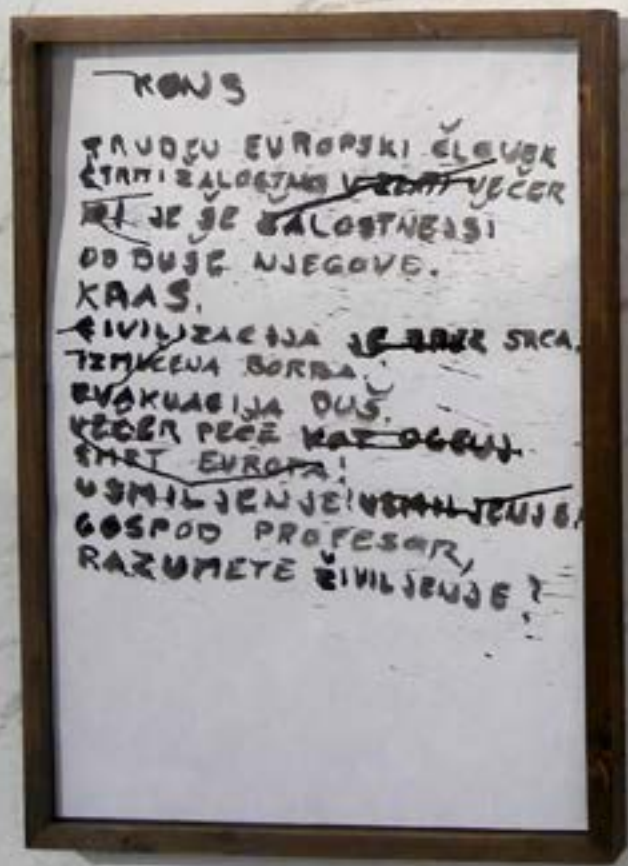 KONS
TRUDEN EVROPSKI ČLOVEK
STRMI ŽALOSTNO V ZLATI VEČER
KI JE ŠE ŽALOSTNEJŠI
OD DUŠE NJEGOVE.
KRAS.
CIVILIZACIJA JE BREZ SRCA.
BORBA.
EVAKUACIJA DUŠ.
VEČER PEČE KOT OGENJ.
SMRT EVROPA!
USMILJENJE! USMILJENJE!
GOSPOD PROFESOR,
RAZUMETE ŽIVLJENJE?